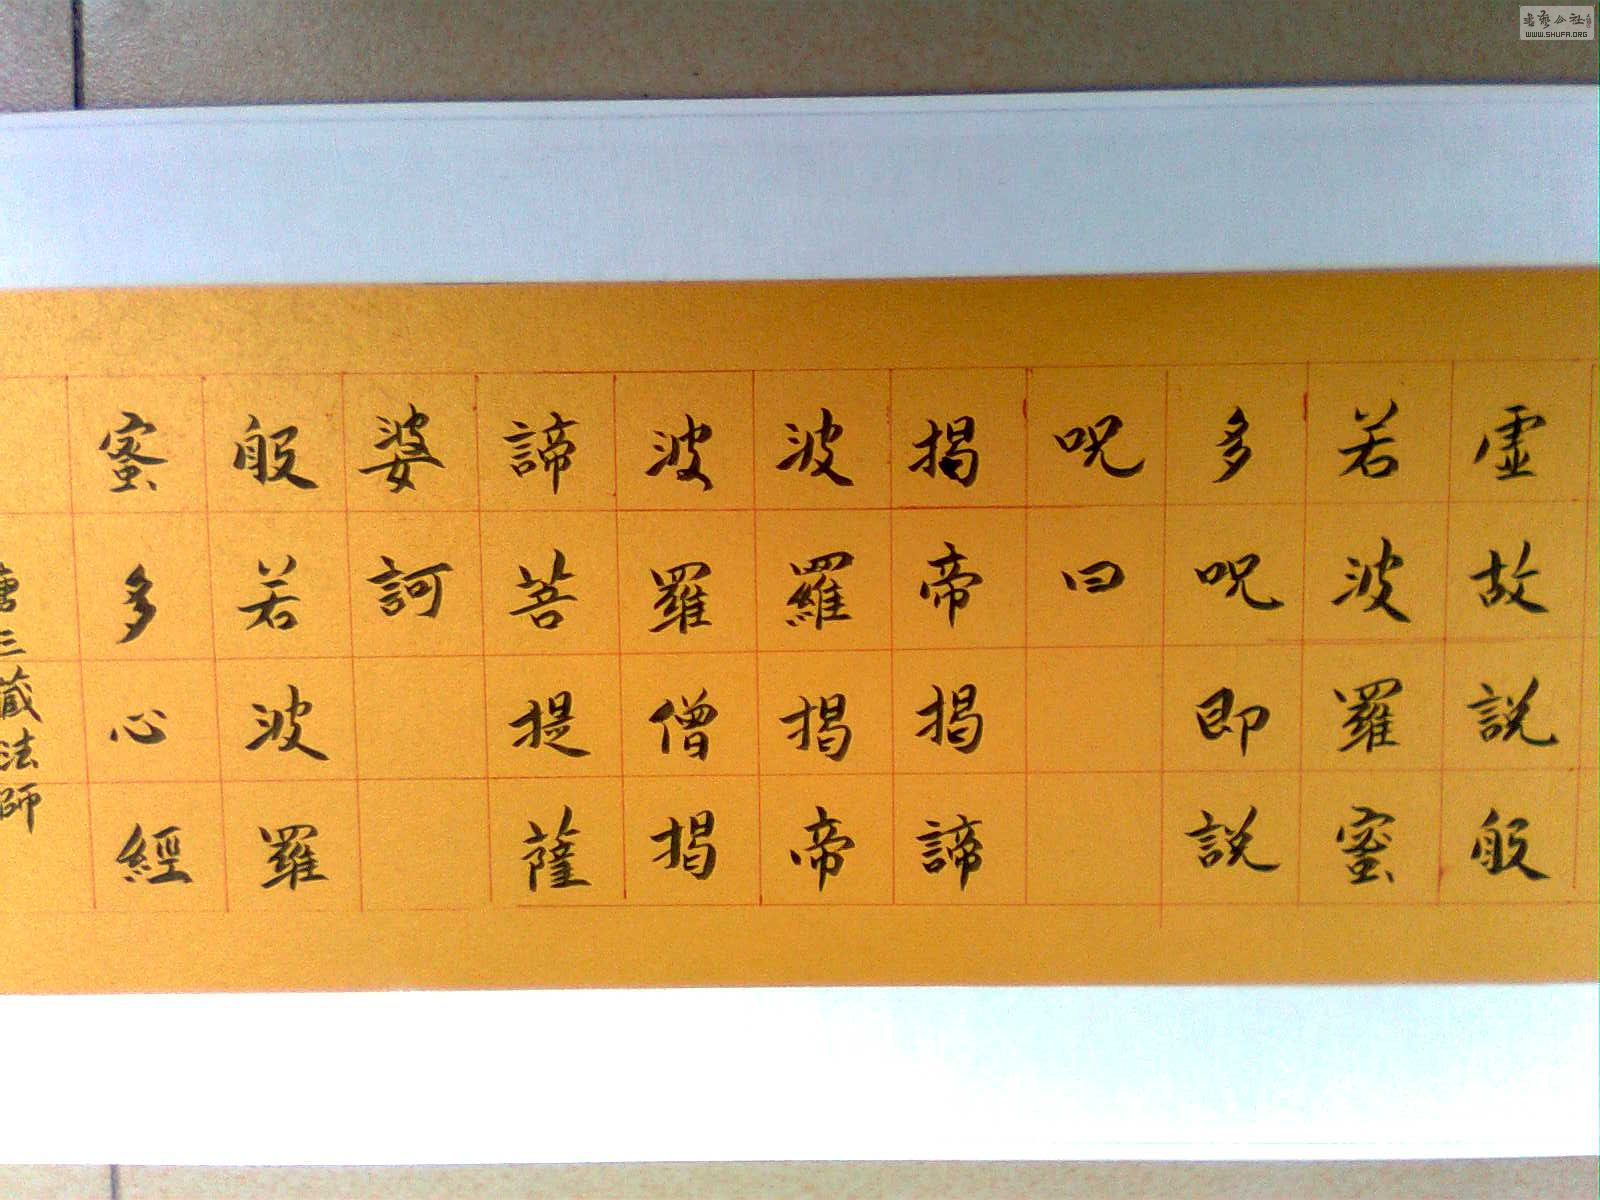 虛故說般
若波羅蜜
多呪即說
呪曰
揭帝揭諦
波羅揭帝
波羅僧揭
諦菩提薩
婆訶
般若波羅
蜜多心經
唐三藏法師
書藝公社
WWW.SHUFA.ORG